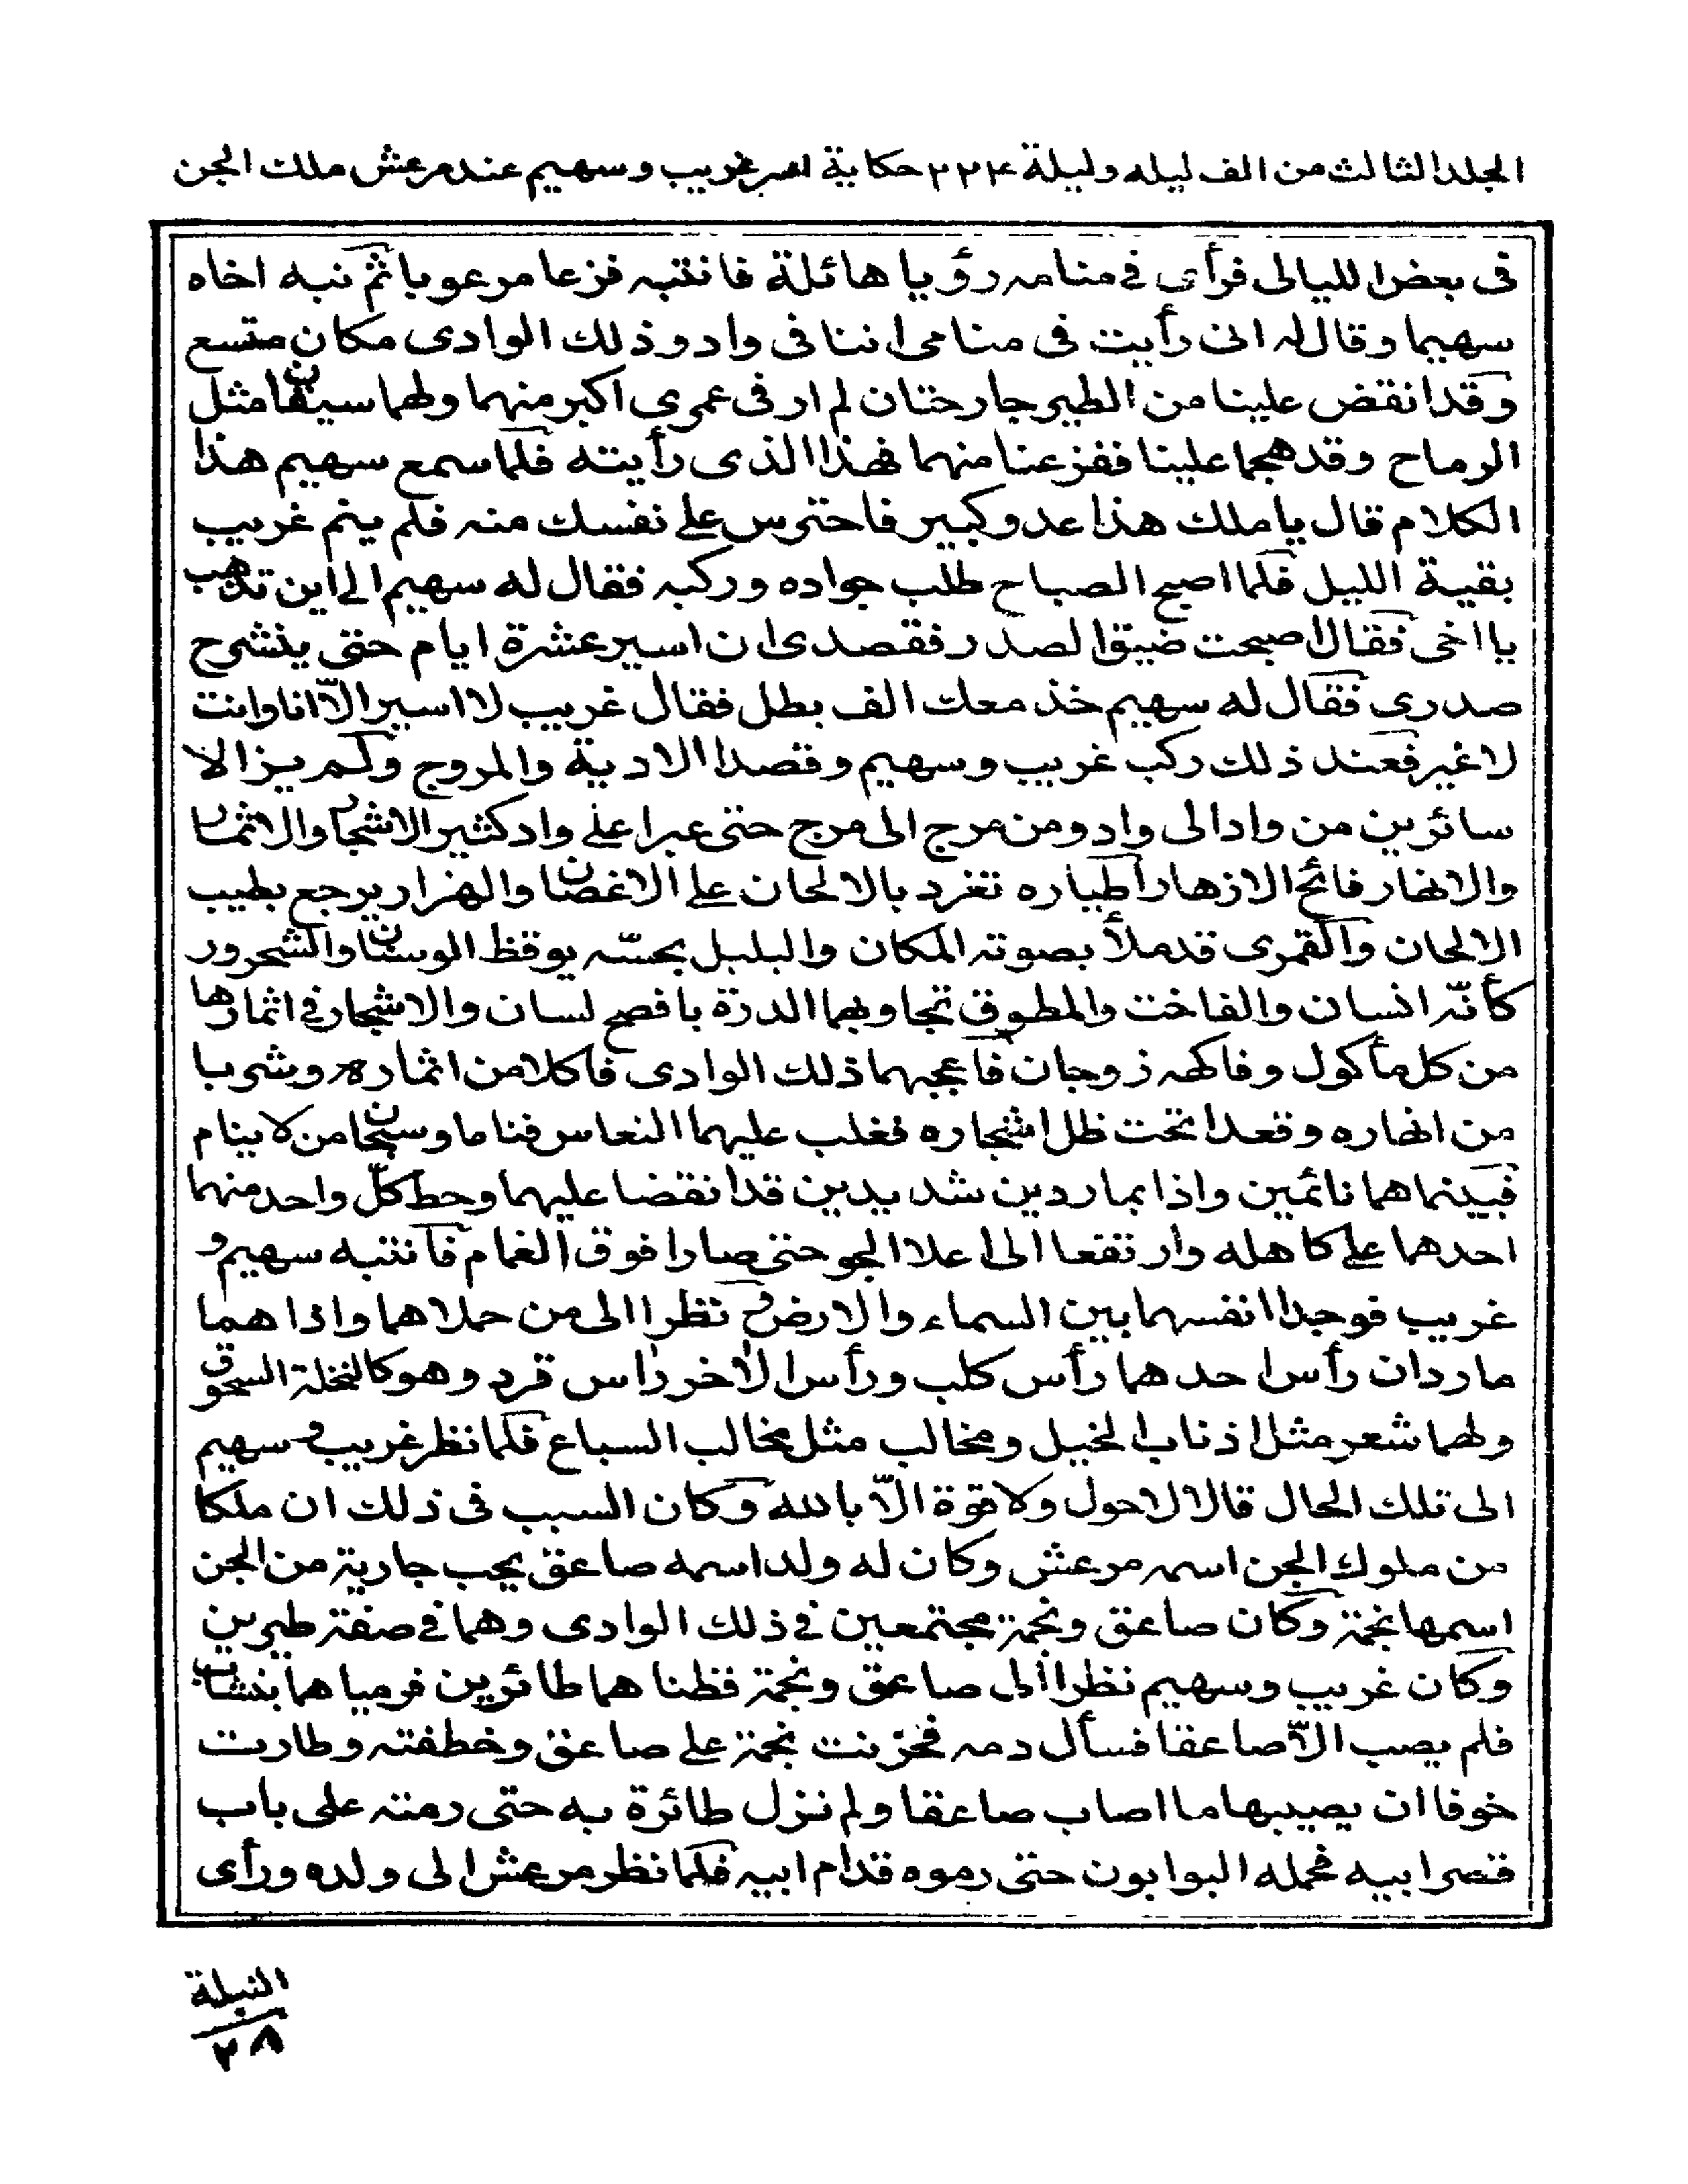 المجلد الثالث من الف ليله وليلة ٢٢٤ حكاية اسر غريب وسهيم عند مرعش ملك الجن
فى بعض الليالى فرأى فى منامه رؤيا هائلة فانتبه فزعا مرعوبا ثم نبه اخاه
سهيما وقال له انى رأيت فى منامى اننا فى واد وذلك الوادى مكان متسع
وقد انقض علينا من الطير جارحتان لم ار فى عمرى اكبر منهما ولهما سيقان مثل
الرماح وقد هجما علينا ففزعنا منهما فهذا الذى رأيته فلما سمع سهيم هذا
الكلام قال يا ملك هذا عدو كبير فاحترس على نفسك منه فلم ينم غريب
بقية الليل فلما اصبح الصباح طلب جواده وركبه فقال له سهيم الى اين تذهب
يا اخى فقال اصبحت ضيق الصدر فقصدى ان اسير عشرة ايام حتى ينشرح
صدرى فقال له سهيم خذ معك الف بطل فقال غريب لا اسير الّا انا وانت
لا غير فعند ذلك ركب غريب وسهيم وقصدا الادية والمروج ولم يزالا
سائرين من واد الى واد ومن مرج الى مرج حتى عبرا على واد كثير الاشجار والاثمار
والانهار فائح الازهار اطياره تغرد بالالحان على الاغصان والهزار يرجع بطيب
الالحان والقمرى قد ملأ بصوته المكان والبلبل بحسّه يوقظ الوسنان والشحرور
كأنّه انسان والفاخت والمطوق تجاوبهما الدرّة بافصح لسان والاشجار فى اثمارها
من كل مأكول وفاكهه زوجان فاعجبهما ذلك الوادى فاكلا من اثماره وشربا
من انهاره وقعدا تحت ظل اشجاره فغلب عليهما النعاس فناما وسبحان من لا ينام
فبينما هما نائمين واذا بماردين شديدين قد انقضا عليهما وحط كلّ واحد منهما
احدهما على كاهله وارتفعا الى اعلا الجو حتى صارا فوق الغمام فانتبه سهيم و
غريب فوجدا انفسهما بين السماء والارض ونظرا الى من حملاهما واذا هما
ماردان رأس احدهما رأس كلب ورأس الاخر رأس قرد وهو كالنخلة السحوق
ولهما شعر مثل اذناب الخيل ومخالب مثل مخالب السباع فلما نظر غريب وسهيم
الى تلك الحال قالا لا حول ولا قوة الّا بالله وكان السبب فى ذلك ان ملكا
من ملوك الجن اسمه مرعش وكان له ولد اسمه صاعق يحب جارية من الجن
اسمها نجمة وكان صاعق ونجمة مجتمعين فى ذلك الوادى وهما فى صفة طيرين
وكان غريب وسهيم نظرا الى صاعق ونجمة فظناهما طائرين فرمياهما بنشاب
فلم يصب الّا صاعقا فسأل دمه فحزنت نجمة على صاعق وخطفته وطارت
خوفا ان يصيبها ما اصاب صاعقا ولم نزل طائرة به حتى رمته على باب
قصر ابيه فحمله البوابون حتى رموه قدام ابيه فلما نظر مرعش الى ولده ورأى
النبلة
٢٨